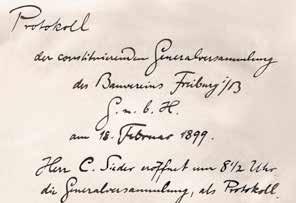 Protokoll
der constituirenden Generalversammlung
des Bauvereins Freiburg i/B
G.m.b.H.
am 18. Februar 1899.
Herr C. Sieder eröffnet um 8 1/2 Uhr
die Generalversammlung, als Protokoll